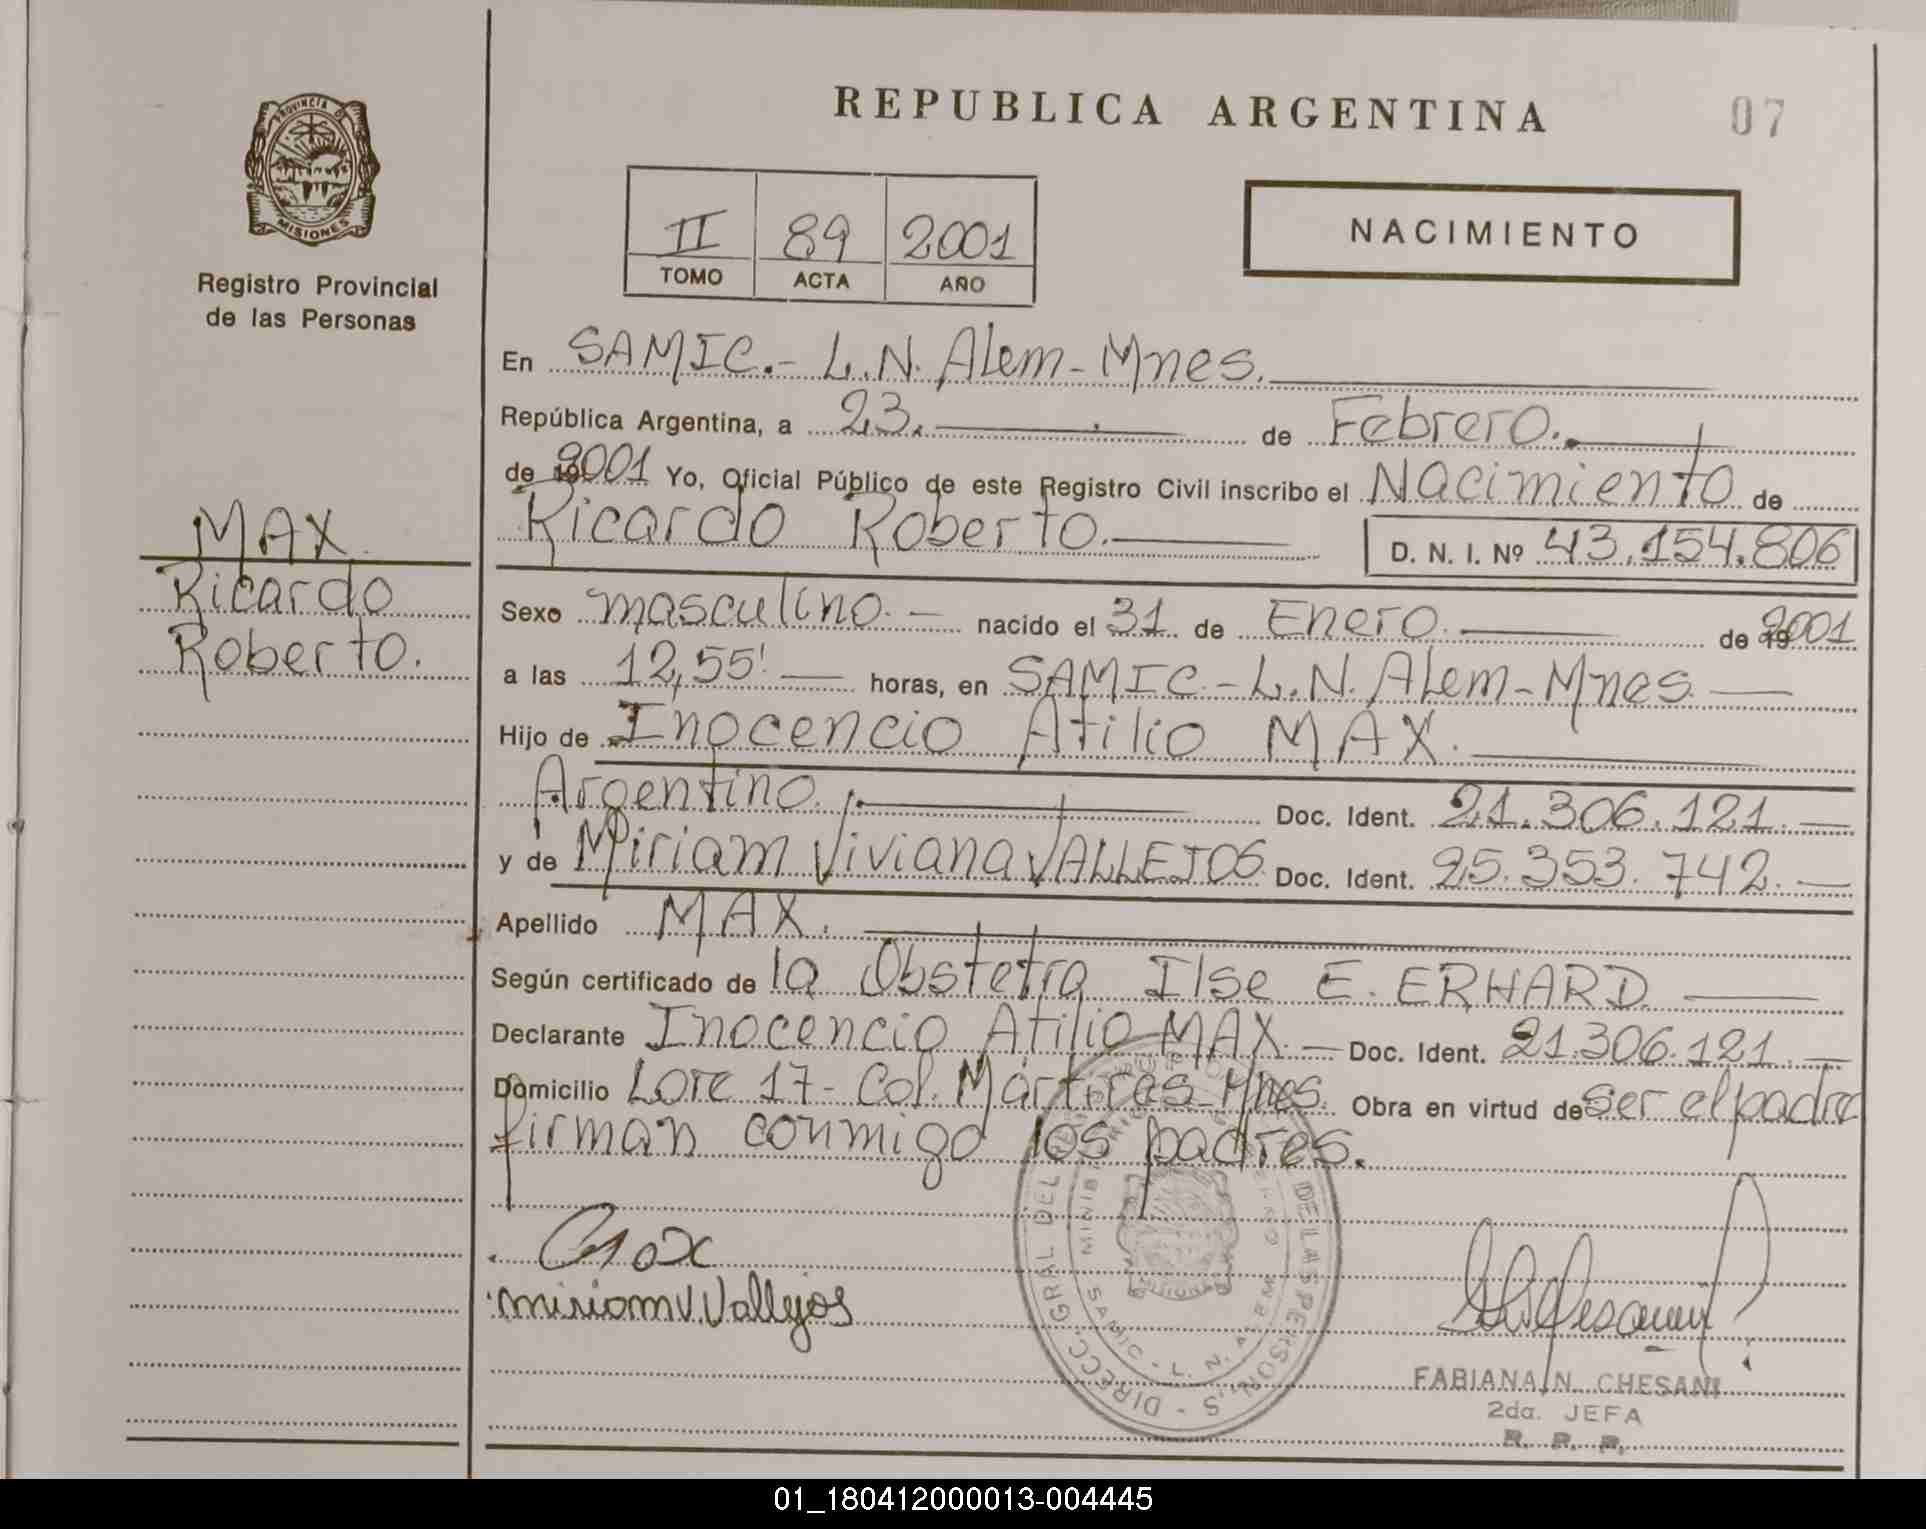 REPUBLICA ARGENTINA
07
PROVINCIA DE
MISIONES
Registro Provincial
de las Personas
II 89 2001
TOMO ACTA AÑO
NACIMIENTO
En SAMIC.- L.N. Alem - Mnes.
República Argentina, a 23. de Febrero.
de 2001 Yo, Oficial Público de este Registro Civil inscribo el Nacimiento de
Ricardo Roberto. D. N. I. Nº 43.154.806
MAX
Ricardo
Roberto.
Sexo masculino.- nacido el 31 de Enero. de 2001
a las 12,55' horas, en SAMIC.- L.N. Alem - Mnes
Hijo de Inocencio Atilio MAX.
Argentino. Doc. Ident. 21.306.121.-
y de Miriam Viviana VALLEJOS Doc. Ident. 25.353.742.-
Apellido MAX.
Según certificado de la Obstetra Ilse E. ERHARD
Declarante Inocencio Atilio MAX.- Doc. Ident. 21.306.121.-
Domicilio Lote 17 - Col. Mártires - Mnes. Obra en virtud de ser el padre
firman conmigo los padres.
Max
miriam V. Vallejos
DIRECC. GRAL DEL DE LAS PERSONAS
SAMIC - L. N. ALEM
FABIANA N. CHESANI
2da. JEFA
R. P. P.
01_180412000013-004445